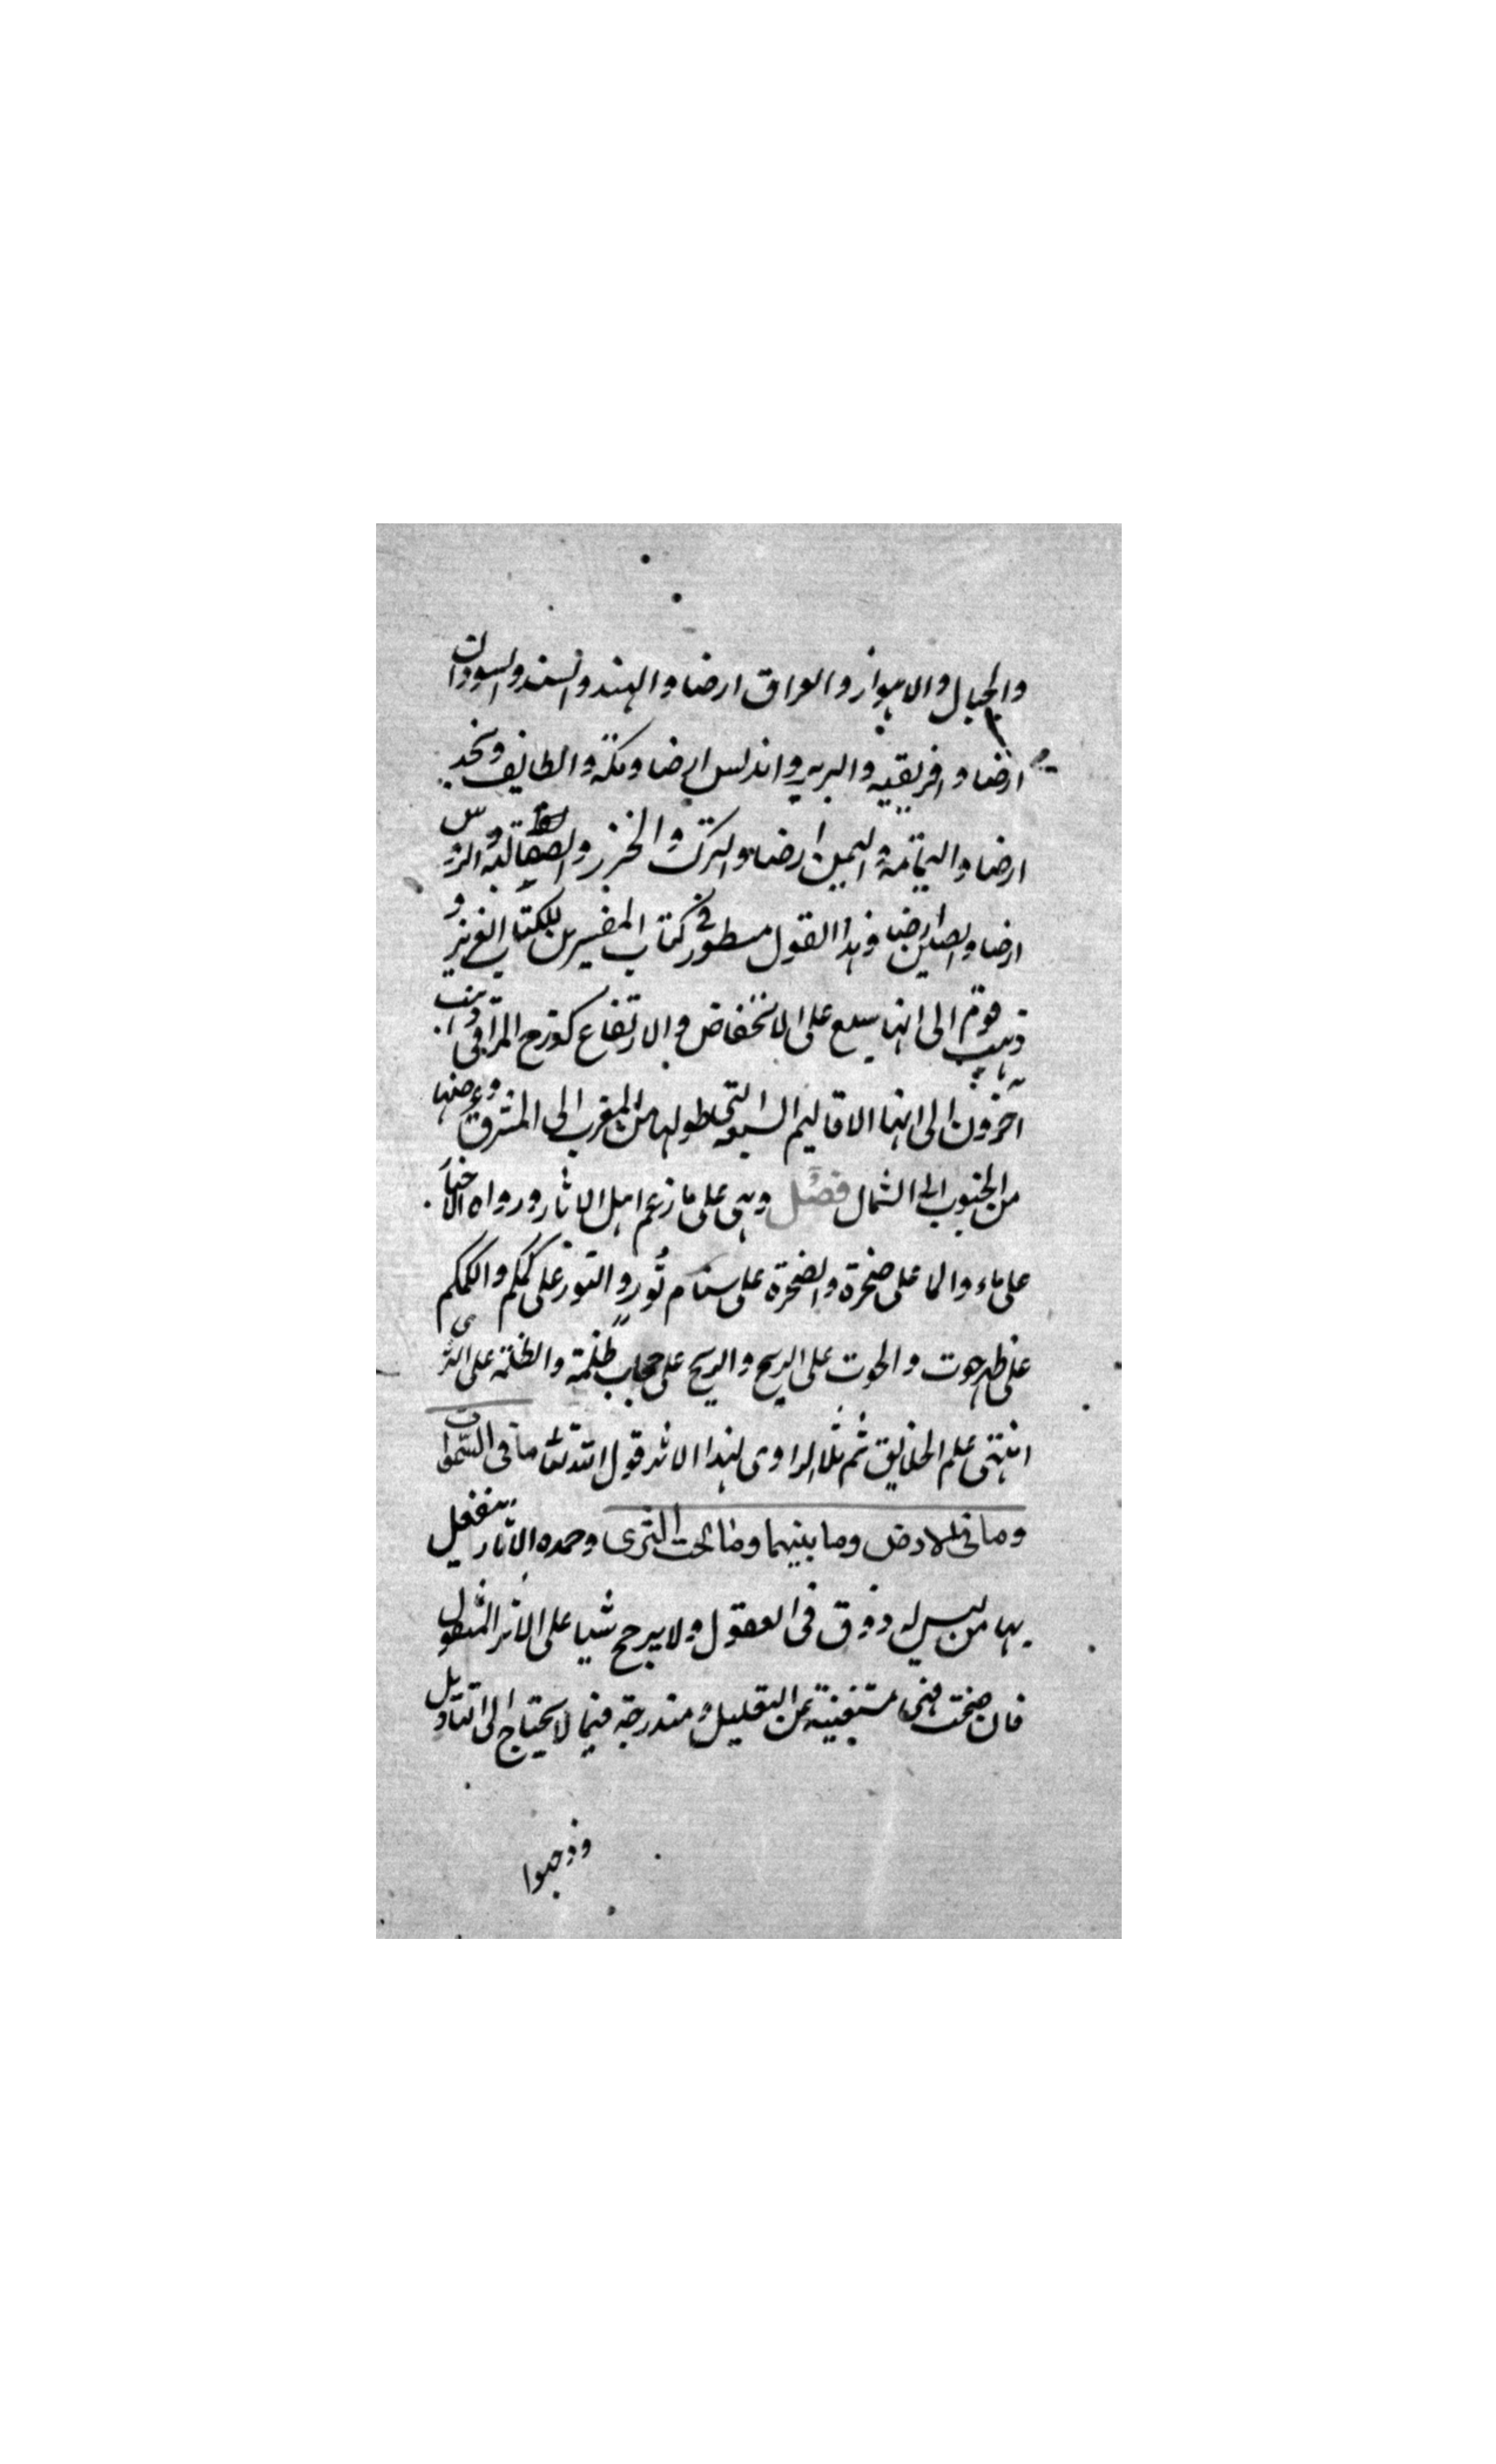 والجبال والاهواز والعراق ارضا والهند والسند والسودان
ارضا وافريقيه والبربر واندلس ارضا ومكة والطايف ونجد
ارضا واليمامة واليمن ارضا والترك والخزر والصقالبه والروس
ارضا والصين ارضا وهذا القول مسطور في كتاب المفسرين للكتاب العزيز و
ذهب قوم الى انها سبع على الانخفاض والارتفاع كدرج المراقي وذهب
آخرون الى انها الاقاليم السبعه التي طولها من المغرب الى المشرق وعرضها
من الجنوب الى الشمال فصل وهي على ما زعم اهل الاثار ورواه الاخبار
على ماء والما على صخرة والصخرة على سنام ثور والثور على كمكم والكمكم
على ظهر حوت والحوت على الريح والريح على حجاب ظلمة والظلمة على الثرى
انتهى علم الخلايق ثم تلا الراوى لهذا الاثر قول الله تعالى ما في السموات
وما في الارض وما بينهما وما تحت الثرى وهذه الاثار ينفعل
بها من ليس له ذوق في العقول ولا يرجح شيا على الاثر المنقول
فان صحت فهي مستغنية عن التعليل ومندرجة فيما لا يحتاج الى التاويل
وذهبوا